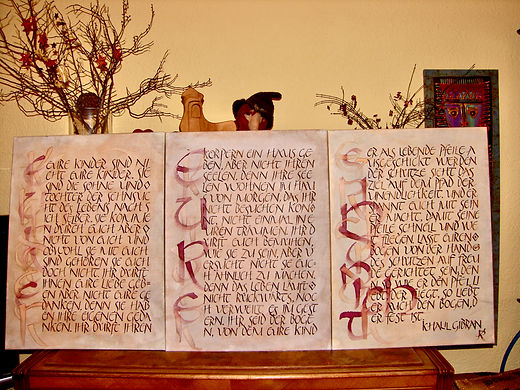 EURE KINDER SIND NI
CHT EURE KINDER. SIE
SIND DIE SÖHNE UND
TÖCHTER DER SEHNSUCHT
DES LEBENS NACH S
ICH SELBER. SIE KOMMEN
DURCH EUCH ABER
NICHT VON EUCH UND
OBWOHL SIE MIT EUCH
SIND GEHÖREN SIE EUCH
DOCH NICHT. IHR DÜRFT
IHNEN EURE LIEBE GEB
EN ABER NICHT EURE GE
DANKEN, DENN SIE HAB
EN IHRE EIGENEN GEDA
NKEN. IHR DÜRFT IHREN
KÖRPERN EIN HAUS GE
BEN, ABER NICHT IHREN
SEELEN, DENN IHRE SEE
LEN WOHNEN IM HAUS
VON MORGEN, DAS IHR
NICHT BESUCHEN KÖNNT
NICHT EINMAL IN E
UREN TRÄUMEN. IHR D
ÜRFT EUCH BEMÜHEN,
WIE SIE ZU SEIN, ABER V
ERSUCHT NICHT SIE EUC
H ÄHNLICH ZU MACHEN
DENN DAS LEBEN LÄUFT
NICHT RÜCKWÄRTS, NOC
H VERWEILT ES IM GEST
ERN. IHR SEID DER BOGE
N, VON DEM EURE KIND
ER ALS LEBENDE PFEILE A
USGESCHICKT WERDEN
DER SCHÜTZE SIEHT DAS
ZIEL AUF DEM PFAD DER
UNENDLICHKEIT UND ER
SPANNT EUCH MIT SEIN
ER MACHT, DAMIT SEINE
PFEILE SCHNELL UND WE
IT FLIEGEN. LASST EUREN
BOGEN VON DER HAND
DES SCHÜTZEN AUF FREU
DE GERICHTET SEIN, DENN
SO WIE ER DEN PFEIL LI
EBT DER FLIEGT, SO LIEBT
ER AUCH DEN BOGEN, D
ER FEST IST.
KHALIL GIBRAN